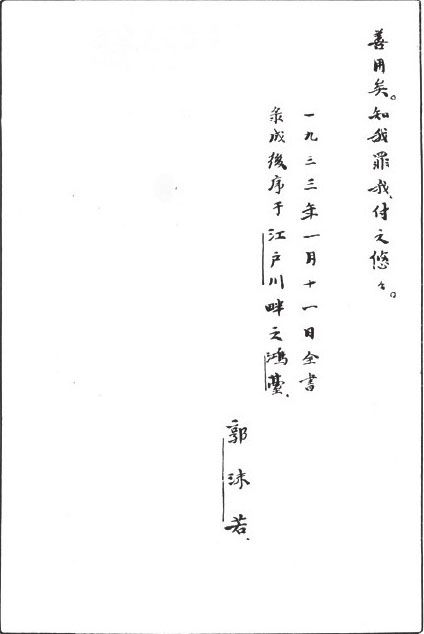 善用矣。知我罪我,付之悠々。
一九三三年一月十一日全書
录成後序于江戸川畔之鴻臺、
郭沫若、